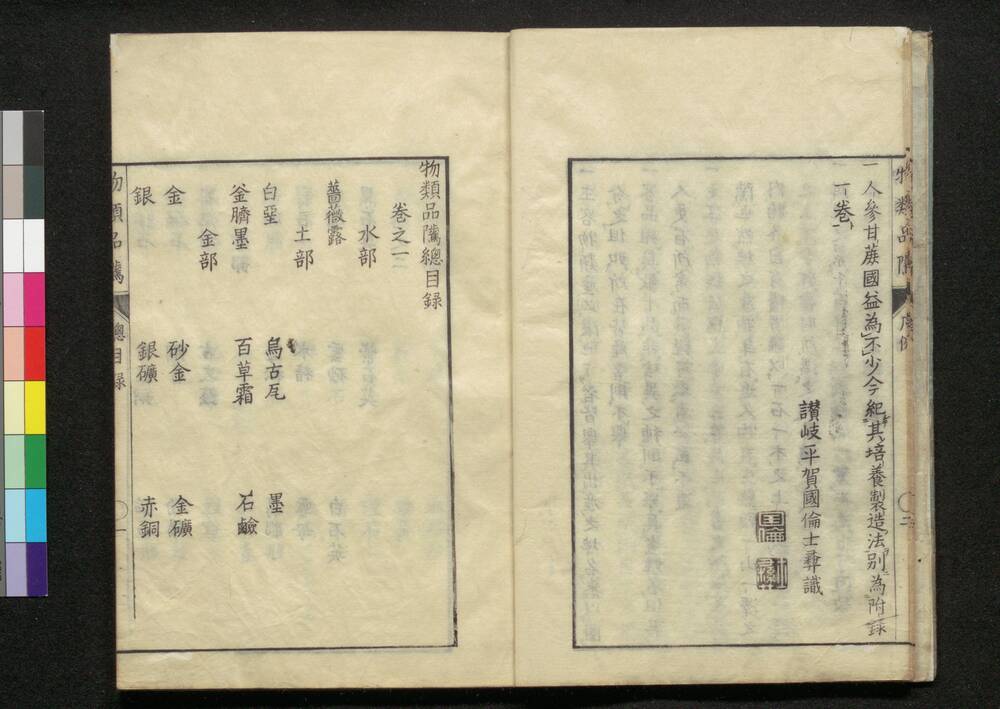 一人參甘蔗國益為不少今紀其培養製造法別為附録
一卷
讃岐平賀國倫士彝識
國倫
士彝
物類品隲
物類品隲總目録
卷之一
水部
薔薇露
土部
白堊
烏古瓦
墨
釜臍墨
百草霜
石鹼
金部
金
砂金
金礦
銀
銀礦
赤銅
物類品隲
總目録
一